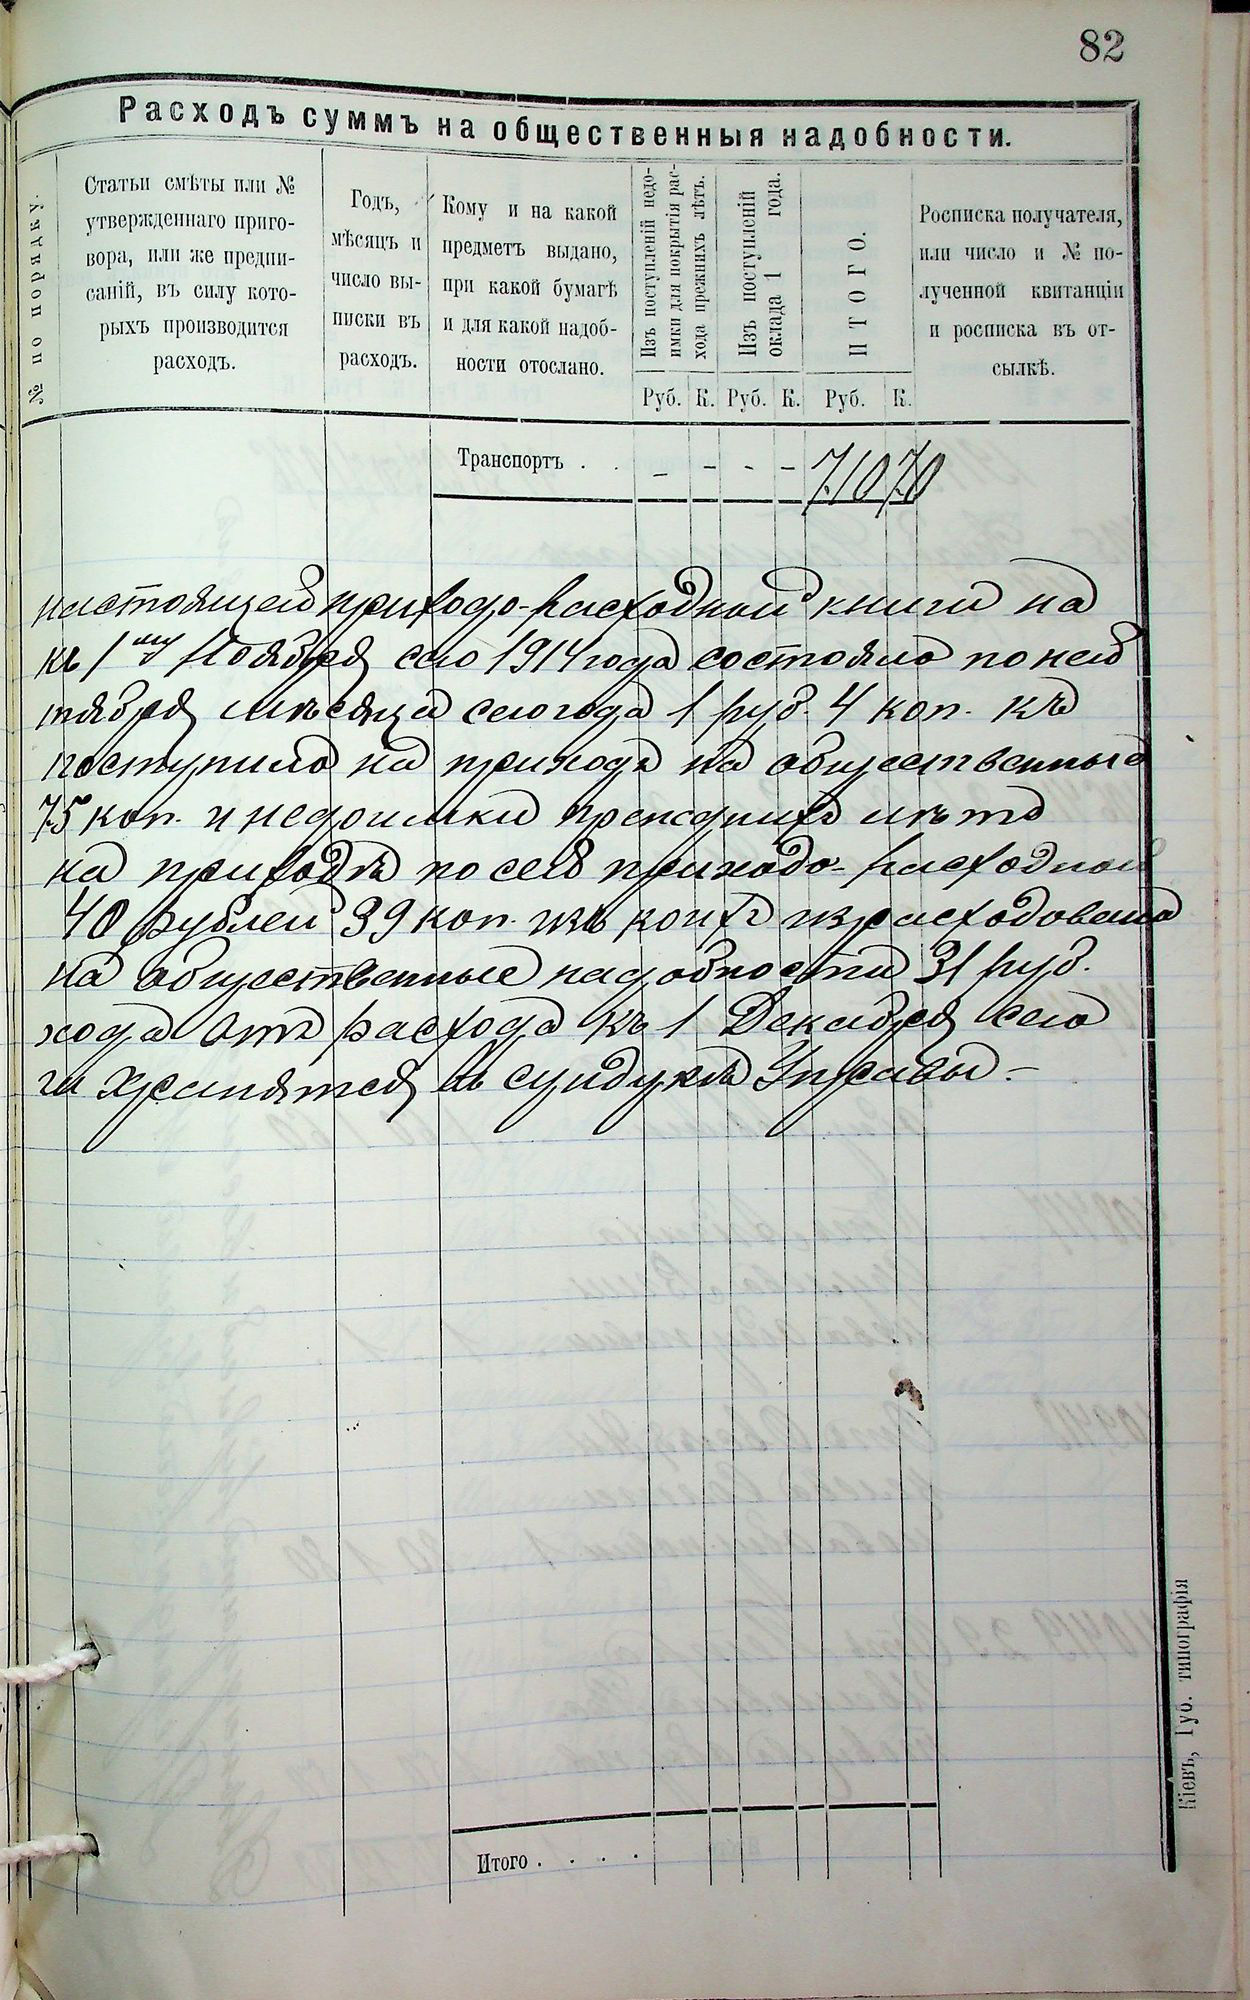 82
Расходъ суммъ на общественныя надобности.
№ по порядку.
Статьи смѣты или №
утвержденнаго приго-
вора, или же предпи-
саній, въ силу кото-
рыхъ производится
расходъ.
Годъ,
мѣсяцъ и
число вы-
писки въ
расходъ.
Кому и на какой
предметъ выдано,
при какой бумагѣ
и для какой надоб-
ности отослано.
Изъ поступленій недо-
имки для покрытія рас-
хода прежнихъ лѣтъ.
Изъ поступленій
оклада 1 года.
ИТОГО.
Росписка получателя,
или число и № по-
лученной квитанціи
и росписка въ от-
сылкѣ.
Руб. К. Руб. К. Руб. К.
Транспортъ . . – – – – 710 70
настоящей приходо-расходной книги на
къ 1му Ноября сего 1914 года состояло по ней
тября мѣсяца сего года 1 руб. 4 коп. къ
поступило на приходъ на общественные
75 коп. и недоимки прежнихъ лѣтъ
на приходѣ по сей приходо-расходной
40 рублей 39 коп. изъ коихъ израсходовано
на общественные надобности 31 руб.
хода отъ расхода къ 1 Декабря сего
ги хранятся въ сундукѣ Управы. –
Итого . . . .
Кіевъ, Губ. типографія